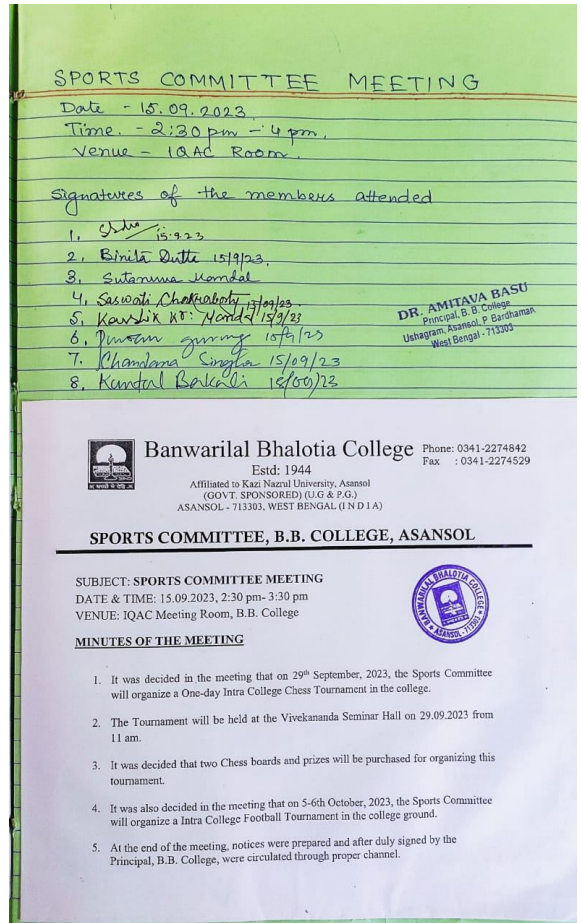 SPORTS COMMITTEE MEETING
Date - 15.09.2023.
Time. - 2:30 pm - 4 pm.
Venue - IQAC Room.
Signatures of the members attended
1. 15.9.23
2. Binita Dutta 15/9/23.
3. Sutanuma Mondal
4. Saswati Chakraborty 15/09/23.
5. Kaushik Kr. Mandal 15/9/23
6. gurung 15/9/23
7. Chandana Singha 15/09/23
8. Kuntal Baskali 15/09/23
DR. AMITAVA BASU
Principal, B. B. College
Ushagram, Asansol, P. Bardhaman
West Bengal - 713303
Banwarilal Bhalotia College
Phone: 0341-2274842
Fax : 0341-2274529
Estd: 1944
Affiliated to Kazi Nazrul University, Asansol
(GOVT. SPONSORED) (U.G & P.G.)
ASANSOL - 713303, WEST BENGAL (I N D I A)
SPORTS COMMITTEE, B.B. COLLEGE, ASANSOL
SUBJECT: SPORTS COMMITTEE MEETING
DATE & TIME: 15.09.2023, 2:30 pm- 3:30 pm
VENUE: IQAC Meeting Room, B.B. College
BANWARILAL BHALOTIA COLLEGE
ASANSOL-713303
MINUTES OF THE MEETING
1. It was decided in the meeting that on 29th September, 2023, the Sports Committee
will organize a One-day Intra College Chess Tournament in the college.
2. The Tournament will be held at the Vivekananda Seminar Hall on 29.09.2023 from
11 am.
3. It was decided that two Chess boards and prizes will be purchased for organizing this
tournament.
4. It was also decided in the meeting that on 5-6th October, 2023, the Sports Committee
will organize a Intra College Football Tournament in the college ground.
5. At the end of the meeting, notices were prepared and after duly signed by the
Principal, B.B. College, were circulated through proper channel.